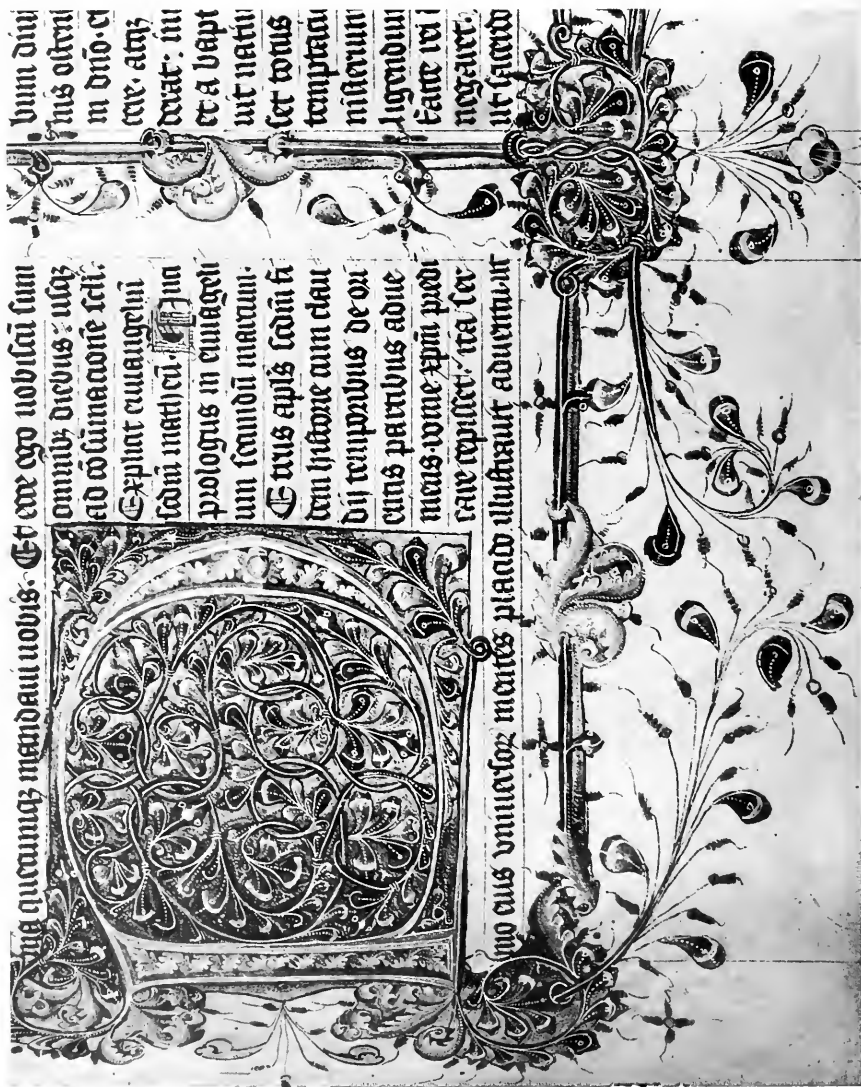 nia quecumqz mandaui uobis. Et ecce ego uobiscū sum
omnibz diebus usqz
ad cōsumacionē scli.
Explicit euuangeliū
scdm̄ matheū.
prologus in euuāgeli
um secundū marcum.
Etrus apls̄ scdm̄ fi
dem hystorie cum clau
dij temporibus de ori
entis partibus adue
niens rome xpm̄ predi
care cepisset. ita ser
mo eius vniuersorz mentes placido illustrauit aduentu ut
bum diui
nis osten
in dn̄o.
cere. atqz
derat. in
et a bapt
uit natiui
set totus
temptacio
nisterium
ligendum
tante rei i
negaret.
ut sacerdo